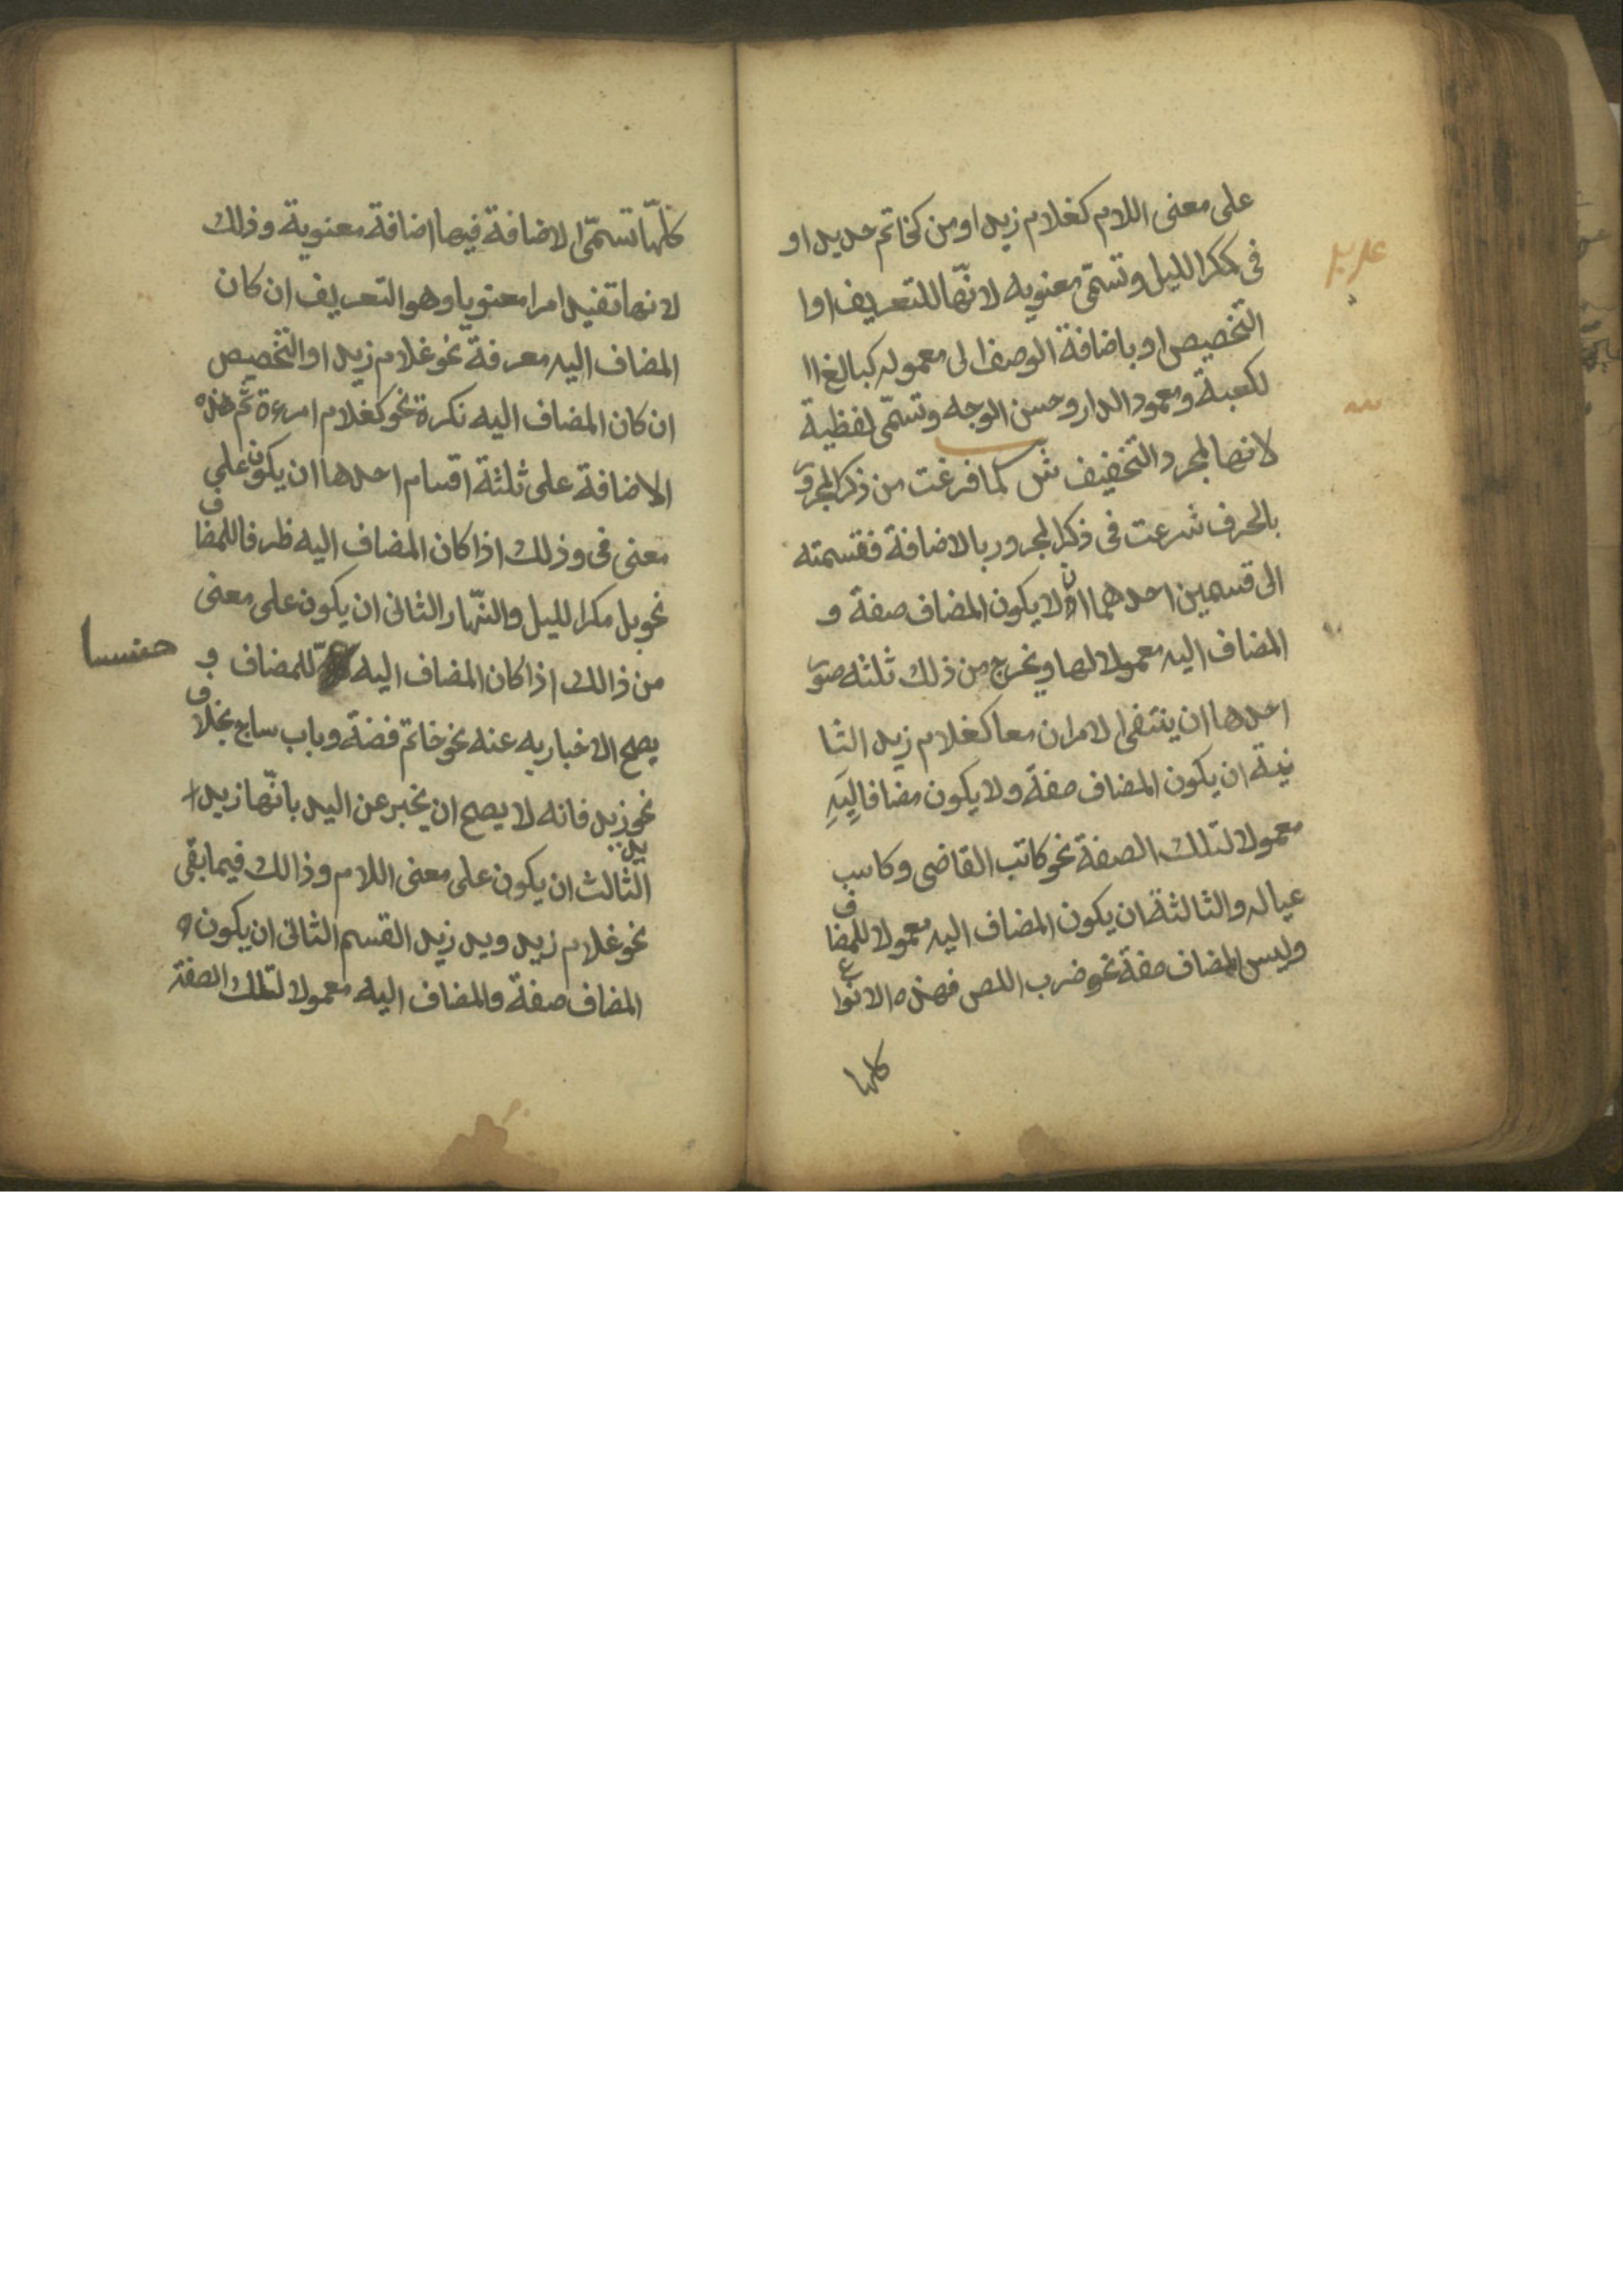 على معنى اللام كغلام زيد او من كخاتم حديد او
فى كمكر الليل وتسمّى معنويه لانّها للتعريف او ا
التخصيص او باضافة الوصف الى معموله كبالغ ا
لكعبة ومعمود الدار وحسن الوجه وتسمّى لفظية
لانها لمجرد التخفيف ش لما فرغت من ذكر المجرور
بالحرف شرعت فى ذكر المجرور بالاضافة فقسمته
الى قسمين احدهما ان لا يكون المضاف صفة و
المضاف اليه معمولا لها ويخرج من ذلك ثلثه صور
احدها ان ينتفى الامران معا كغلام زيد الثا
نية ان يكون المضاف صفة ولا يكون مضافا اليه
معمولا لتلك الصفة نحو كاتب القاضى وكاسب
عياله والثالثة ان يكون المضاف اليه معمولا للمضاف
وليس المضاف صفة نحو ضرب اللص فهذه الانواع
كلها
كلّها تسمّى الاضافة فيها اضافة معنوية وذلك
لانها تفيد امرا معنويا وهو التعريف ان كان
المضاف اليه معرفة نحو غلام زيد او التخصيص
ان كان المضاف اليه نكرة نحو كغلام امرءة ثم هذه
الاضافة على ثلثة اقسام احدها ان يكون على
معنى فى وذلك اذا كان المضاف اليه ظرفا للمضاف
نحو بل مكر الليل والنّهار الثانى ان يكون على معنى
من ذالك اذا كان المضاف اليه كلّ للمضاف و
يصح الاخبار به عنه نحو خاتم فضة وباب ساج بخلاف
نحو يد زيد فانه لا يصح ان يخبر عن اليد بانّها زيد
الثالث ان يكون على معنى اللام وذالك فيما بقى
نحو غلام زيد ويد زيد القسم الثانى ان يكون
المضاف صفة والمضاف اليه معمولا لتلك الصفة